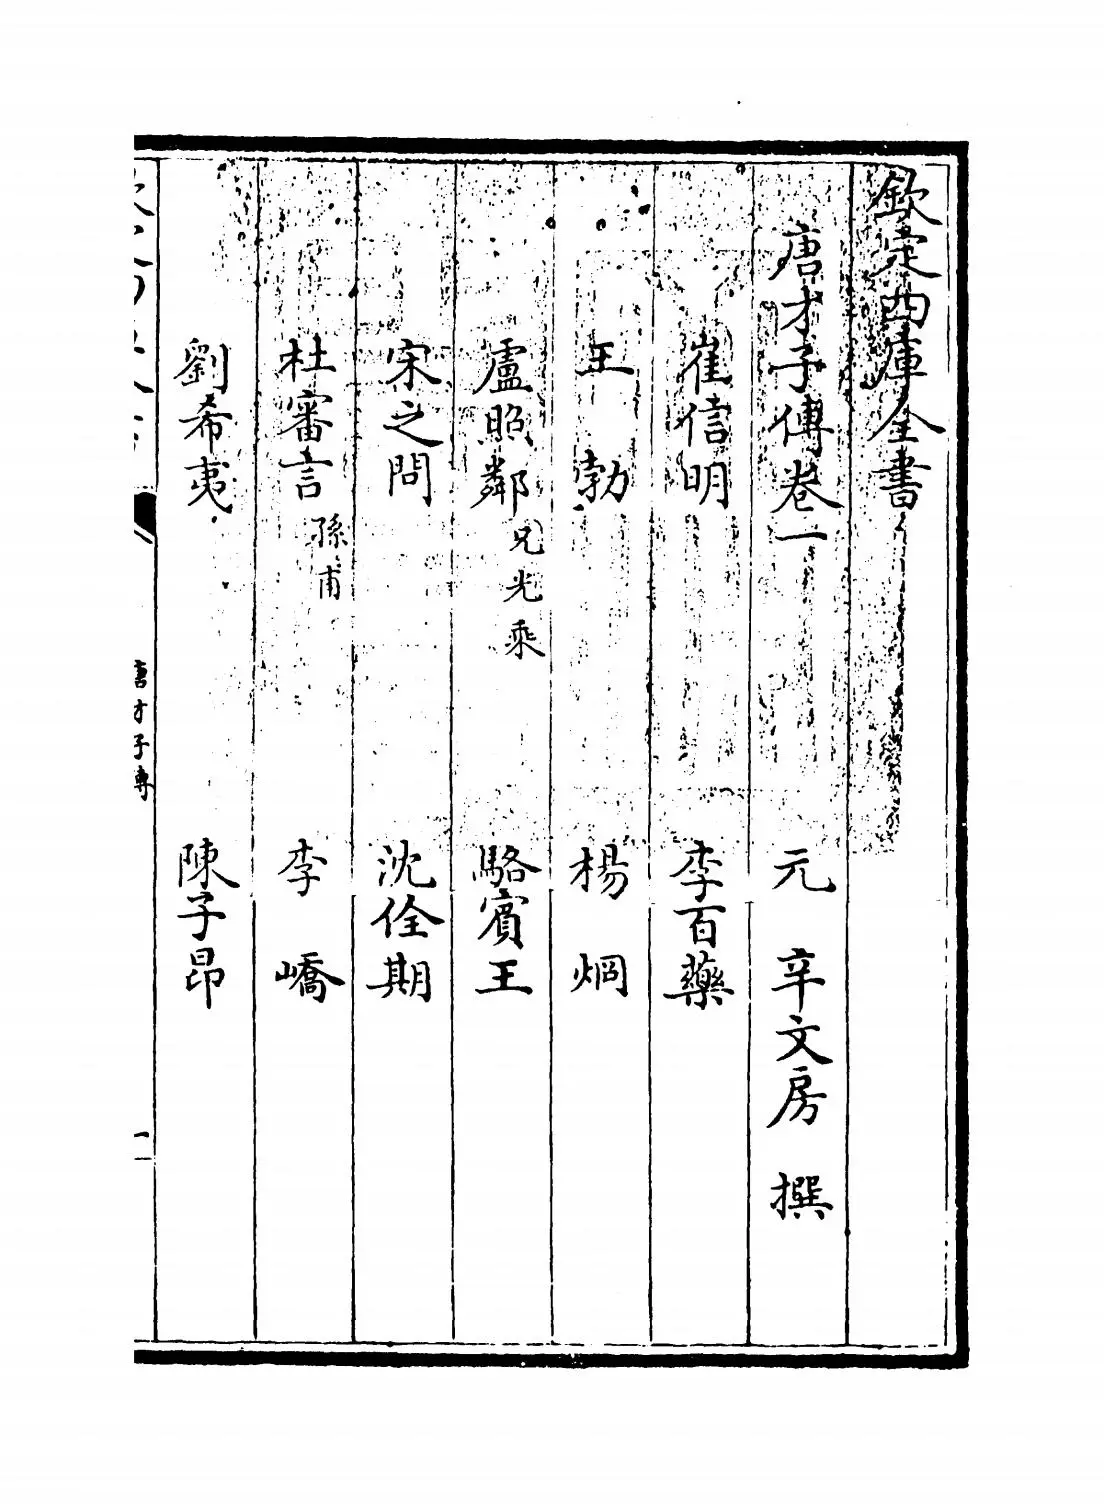 欽定四庫全書
唐才子傳卷一
元 辛文房 撰
崔信明 李百藥
王勃 楊烱
盧照鄰 兄光乘 駱賓王
宋之問 沈佺期
杜審言 孫甫 李嶠
劉希夷 陳子昂
唐才子傳
一